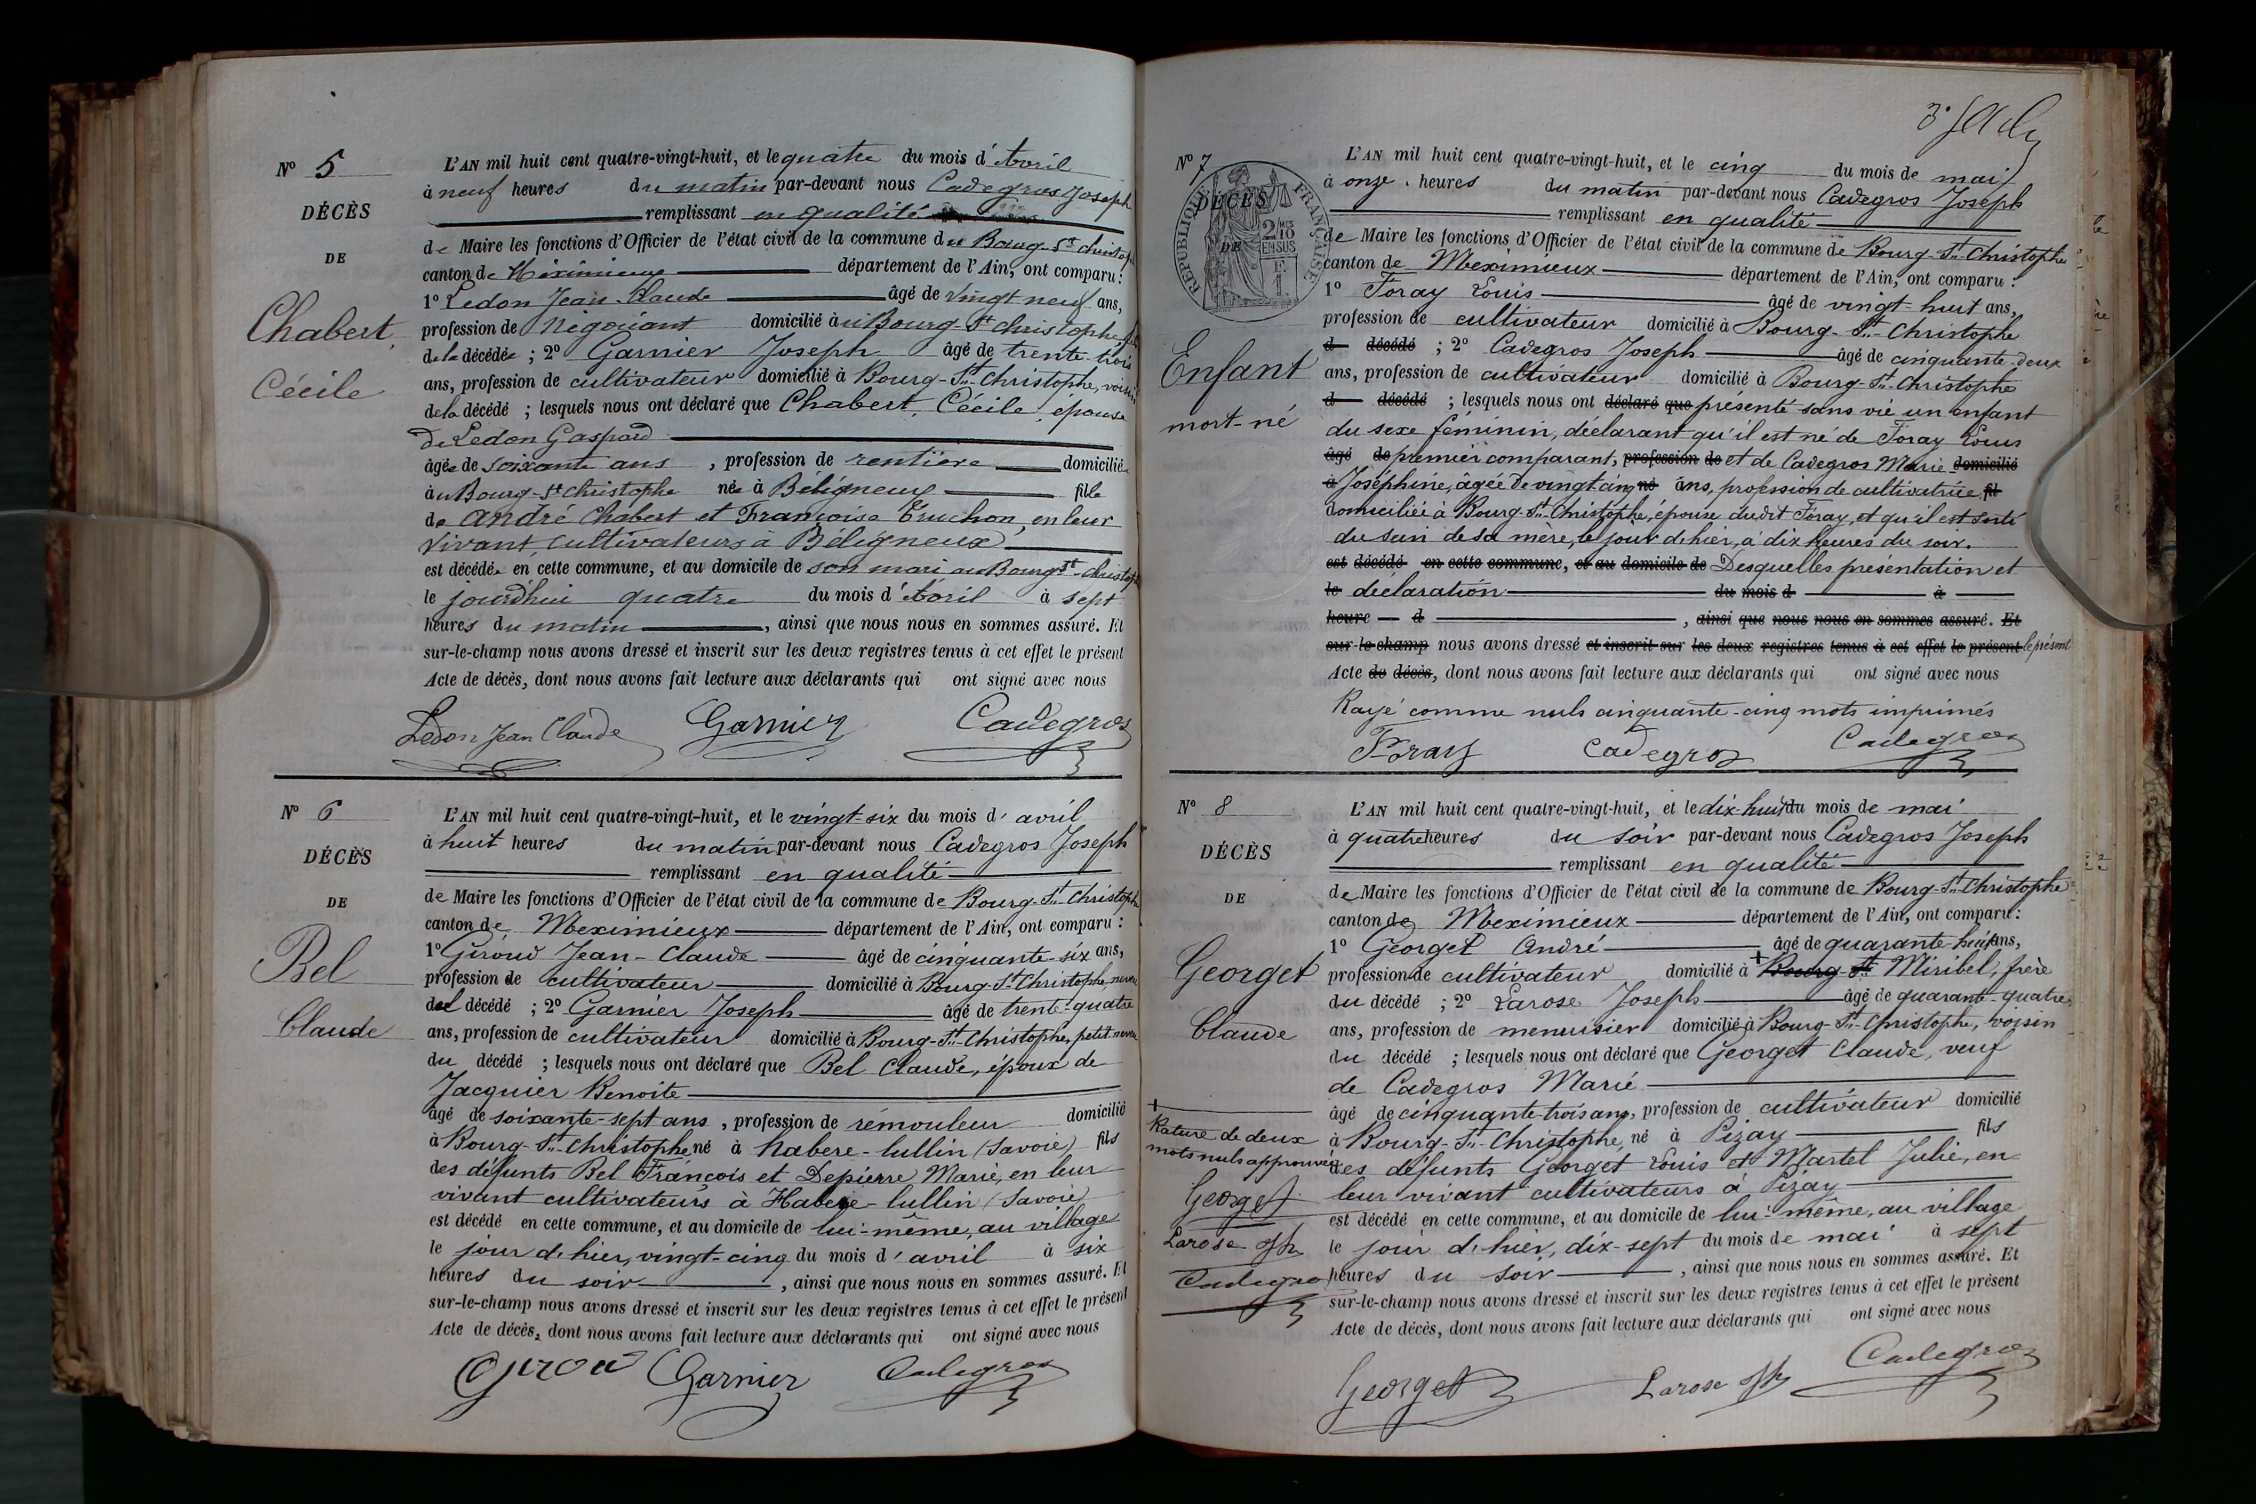 N° 5
DÉCÈS
DE
Chabert,
Cécile
L'AN mil huit cent quatre-vingt-huit, et le quatre du mois d'Avril
à neuf heures du matin par-devant nous Cadegros Joseph
remplissant en qualité
de Maire les fonctions d'Officier de l'état civil de la commune du Bourg-St-christophe
canton de Méximieux département de l'Ain, ont comparu :
1° Ledon Jean Claude âgé de vingt neuf ans,
profession de Négociant domicilié au Bourg-St christophe
de la décédée ; 2° Garnier Joseph âgé de trente-trois
ans, profession de cultivateur domicilié à Bourg-St-Christophe, voisin
de la décédé ; lesquels nous ont déclaré que Chabert, Cécile, épouse
de Ledon Gaspard
âgée de soixante ans , profession de rentière domiciliée
au Bourg-St christophe née à Béligneux fille
de André Chabert et Françoise Truchon, en leur
vivant cultivateurs à Béligneux
est décédée en cette commune, et au domicile de son mari au Bourg St-christophe
le jourd'hui quatre du mois d'Avril à sept
heures du matin , ainsi que nous nous en sommes assuré. Et
sur-le-champ nous avons dressé et inscrit sur les deux registres tenus à cet effet le présent
Acte de décès, dont nous avons fait lecture aux déclarants qui ont signé avec nous
Ledon Jean Claude Garnier Cadegros
N° 6
DÉCÈS
DE
Bel
Claude
L'AN mil huit cent quatre-vingt-huit, et le vingt-six du mois d'avril
à huit heures du matin par-devant nous Cadegros Joseph
remplissant en qualité
de Maire les fonctions d'Officier de l'état civil de la commune de Bourg-St-Christophe
canton de Meximieux département de l'Ain, ont comparu :
1° Giroud Jean-Claude âgé de cinquante-six ans,
profession de cultivateur domicilié à Bourg-St-Christophe, neveu
du décédé ; 2° Garnier Joseph âgé de trente-quatre
ans, profession de cultivateur domicilié à Bourg-St-Christophe, petit neveu
du décédé ; lesquels nous ont déclaré que Bel Claude, époux de
Jacquier Benoîte
âgé de soixante-sept ans , profession de rémouleur domicilié
à Bourg-St-Christophe né à Habere-lullin (Savoie) fils
des défunts Bel François et Depierre Marie, en leur
vivant cultivateurs à Habere-lullin (Savoie)
est décédé en cette commune, et au domicile de lui-même, au village
le jour d'hier, vingt-cinq du mois d'avril à six
heures du soir , ainsi que nous nous en sommes assuré. Et
sur-le-champ nous avons dressé et inscrit sur les deux registres tenus à cet effet le présent
Acte de décès, dont nous avons fait lecture aux déclarants qui ont signé avec nous
Giroud Garnier Cadegros
N° 7
DÉCÈS
DE
RÉPUBLIQUE FRANÇAISE
2/10
EN SUS
Enfant
mort-né
L'AN mil huit cent quatre-vingt-huit, et le cinq du mois de mai
à onze heures du matin par-devant nous Cadegros Joseph
remplissant en qualité
de Maire les fonctions d'Officier de l'état civil de la commune de Bourg-St-Christophe
canton de Meximieux département de l'Ain, ont comparu :
1° Foray Louis âgé de vingt-huit ans,
profession de cultivateur domicilié à Bourg-St-Christophe
d décédé ; 2° Cadegros Joseph âgé de cinquante-deux
ans, profession de cultivateur domicilié à Bourg-St-Christophe
d décédé ; lesquels nous ont déclaré que présenté sans vie un enfant
du sexe féminin, déclarant qu'il est né de Foray Louis
âgé de premier comparant, profession de et de Cadegros Marie domicilié
à Joséphine, âgée de vingt cinq né ans, profession de cultivatrice, fil
domiciliée à Bourg-St-Christophe, épouse dudit Foray, et qu'il est sorti
du sein de sa mère, le jour d'hier, à dix heures du soir.
est décédé en cette commune, et au domicile de Desquelles présentation et
le déclaration du mois d à
heure d , ainsi que nous nous en sommes assuré. Et
sur-le-champ nous avons dressé et inscrit sur les deux registres tenus à cet effet le présent le présent
Acte de décès, dont nous avons fait lecture aux déclarants qui ont signé avec nous
Rayé comme nuls cinquante-cinq mots imprimés
Foray Cadegros Cadegros
N° 8
DÉCÈS
DE
Georget
Claude
L'AN mil huit cent quatre-vingt-huit, et le dix-huit du mois de mai
à quatre heures du soir par-devant nous Cadegros Joseph
remplissant en qualité
de Maire les fonctions d'Officier de l'état civil de la commune de Bourg-St-Christophe
canton de Meximieux département de l'Ain, ont comparu :
1° Georget André âgé de quarante-huit ans,
profession de cultivateur domicilié à + Bourg-St Miribel, frère
du décédé ; 2° Larose Joseph âgé de quarante-quatre
ans, profession de menuisier domicilié à Bourg-St-Christophe, voisin
du décédé ; lesquels nous ont déclaré que Georget Claude, veuf
de Cadegros Marie
âgé de cinquante-trois ans, profession de cultivateur domicilié
à Bourg-St-Christophe, né à Pizay fils
des défunts Georget Louis et Martel Julie, en
leur vivant cultivateurs à Pizay
est décédé en cette commune, et au domicile de lui-même, au village
le jour d'hier, dix-sept du mois de mai à sept
heures du soir , ainsi que nous nous en sommes assuré. Et
sur-le-champ nous avons dressé et inscrit sur les deux registres tenus à cet effet le présent
Acte de décès, dont nous avons fait lecture aux déclarants qui ont signé avec nous
+
Rature de deux
mots nuls approuvée
Georget
Larose Jph
Cadegros
Georget Larose Jph Cadegros